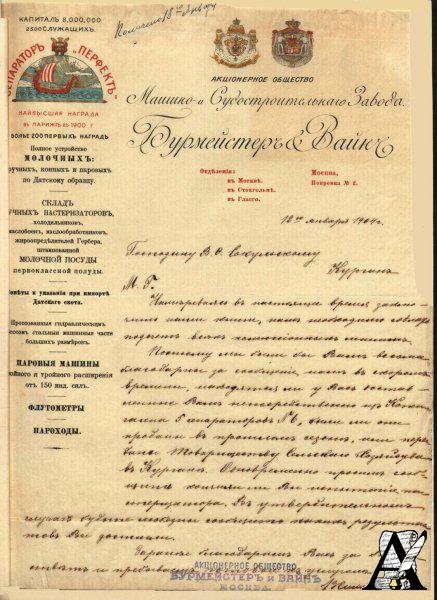 КАПИТАЛЪ 8,000,000
2500 СЛУЖАЩИХЪ.
СЕПАРАТОРЪ „ПЕРФЕКТЪ"
НАИВЫСШАЯ НАГРАДА
ВЪ ПАРИЖѢ ВЪ 1900 г
БОЛѢЕ 200 ПЕРВЫХЪ НАГРАДЪ
Полное устройство
МОЛОЧНЫХЪ:
ручныхъ, конныхъ и паровыхъ
по Датскому образцу.
СКЛАДЪ
УЧНЫХЪ ПАСТЕРИЗАТОРОВЪ,
холодильниковъ,
маслобоекъ, маслообработниковъ,
жиропредѣлителей Гербера,
штампованной
МОЛОЧНОЙ ПОСУДЫ
первоклассной полуды.
овѣты и указанія при импортѣ
Датскаго скота.
Прессованныя гидравлическимъ
ессомъ стальныя машинныя части
большихъ размѣровъ.
ПАРОВЫЯ МАШИНЫ
ойного и тройного расширенія
отъ 150 инд. силъ.
ФЛУТОМЕТРЫ
ПАРОХОДЫ.
Получено 18
АКЦІОНЕРНОЕ ОБЩЕСТВО
Машино- и Судостроительнаго Завода
Бурмейстеръ & Вайнъ
Отдѣленія:
въ Москвѣ.
въ Стокгольмѣ.
въ Глазго.
Москва,
Покровка № 2.
12го января 1904 г.
Господину В. С. Сокульскому
Курганъ
М. Г.
Намѣреваясь въ настоящее время заклю-
чить наши книги, намъ необходимо
Поэтому мы были бы Вамъ весьма
благодарны за сообщеніе намъ въ скоромъ
времени, находятся ли у Васъ достав-
ленные Вамъ непосредственно изъ Копен-
гагена сепараторовъ № 6, были ли они
проданы въ прошломъ сезонѣ, или пере-
даны Товариществу Сельскаго Хозяйства
въ Курганѣ. Одновременно просимъ сооб-
щить кончили ли Вы испытаніе пас-
теризатора. Въ утвердительномъ
случаѣ будьте любезны сообщить какихъ результа-
товъ Вы достигли.
Заранѣе благодаримъ Васъ за
отвѣтъ и пребываемъ
АКЦІОНЕРНОЕ ОБЩЕСТВО
БУРМЕЙСТЕРЪ и ВАЙНЪ
МОСКВА.